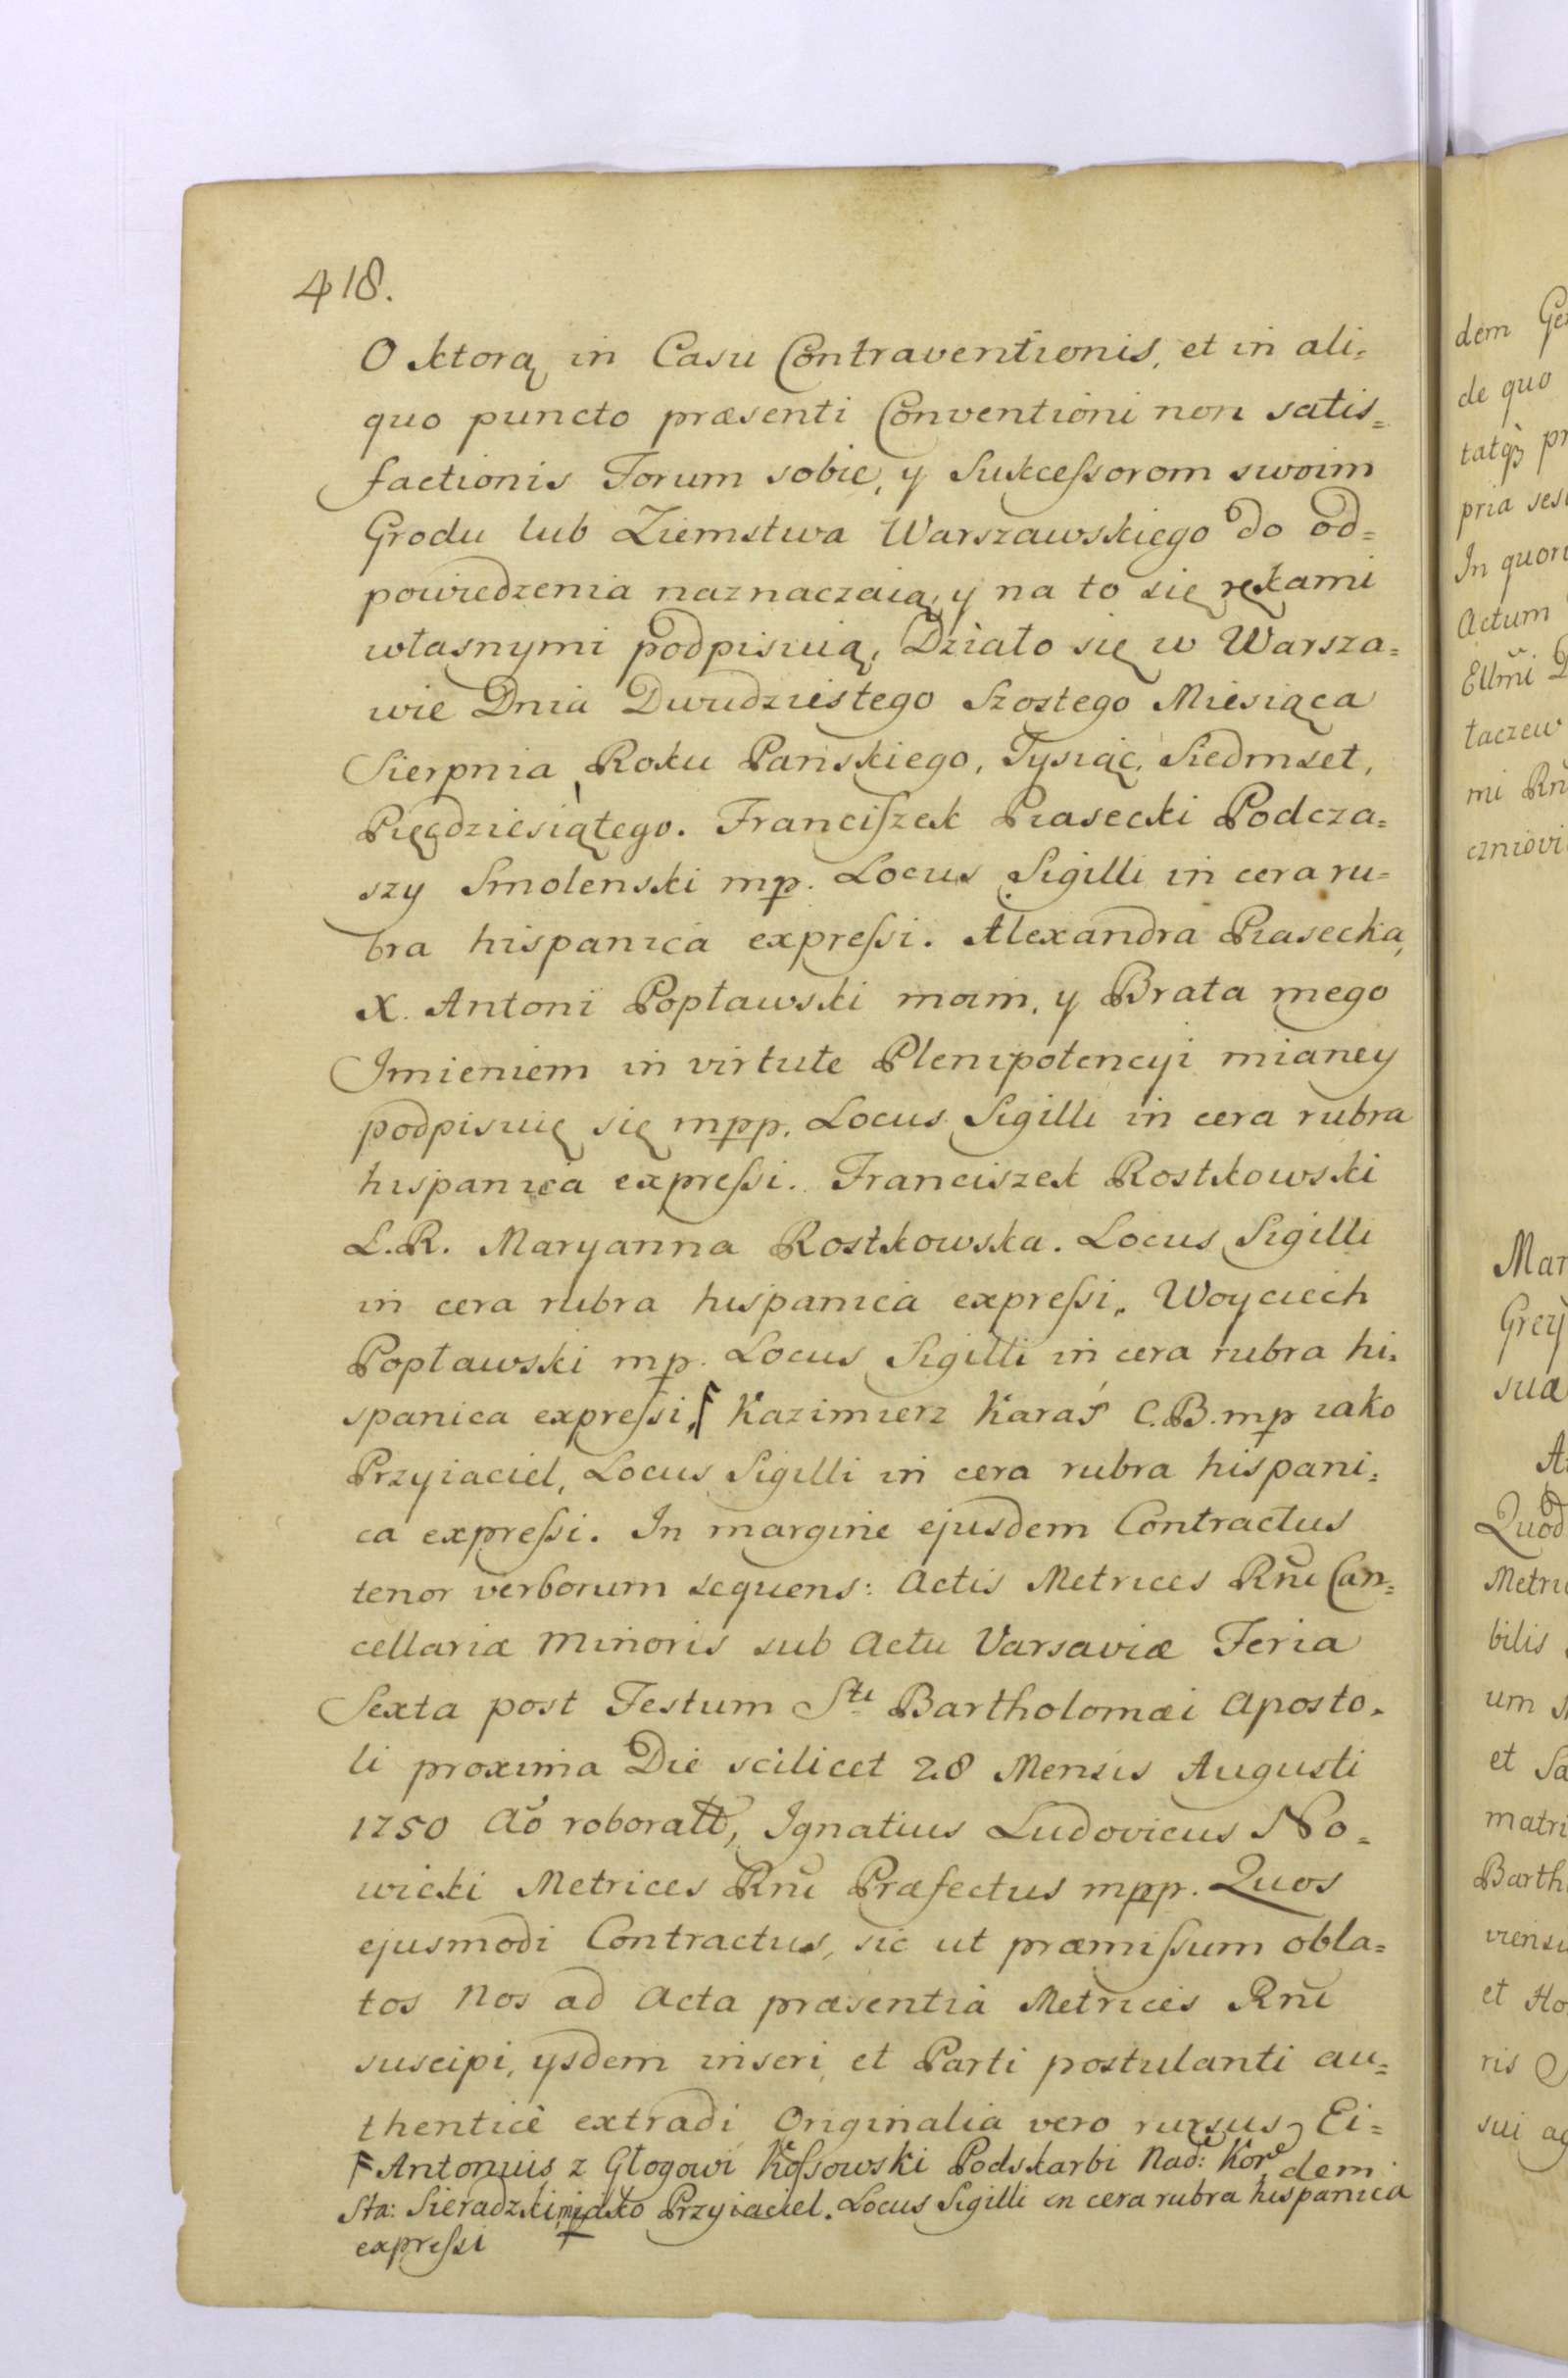 418.
O ktorą in Casu Contraventionis, et in ali=
quo puncto præsenti Conventioni non satis=
factionis Forum sobie, y Sukcessorom swoim
Grodu lub Ziemstwa Warszawskiego do od=
powiedzenia naznaczaią, y na to się rękami
własnymi podpisuią, Działo się w Warsza=
wie Dnia Dwudziestego Szostego Miesiąca
Sierpnia, Roku Panskiego, Tysiąc, Siedmset,
Pięcdziesiątego. Franciszek Piasecki Podcza=
szy Smolenski mp. Locus Sigilli in cera ru=
bra hispanica expressi. Alexandra Piasecka,
X. Antoni Popławski moim, y Brata mego
Imieniem in virtute Plenipotencyi mianey
podpisuię się mpp. Locus Sigilli in cera rubra
hispanica expressi. Franciszek Rostkowski
L.R. Maryanna Rostkowska. Locus Sigilli
in cera rubra hispanica expressi. Woyciech
Popławski mp. Locus Sigilli in cera rubra hi=
spanica expressi, F Kazimierz Karaś C.B. mp iako
Przyiaciel, Locus Sigilli in cera rubra hispani=
ca expressi. In margine ejusdem Contractus
tenor verborum sequens: Actis Metrices Rñi Can=
cellariæ Minoris sub Actu Varsaviæ Feria
Sexta post Festum Sti Bartholomæi Aposto=
li proxima Die scilicet 28 Mensis Augusti
1750 Aõ roboratt, Ignatius Ludovicus No=
wicki Metrices Rñi Præfectus mpp. Quos
ejusmodi Contractus, sic ut præmissum obla=
tos Nos ad Acta præsentia Metrices Rñi
suscipi, ysdem inseri, et Parti postulanti au=
thenticè extradi Originalia vero rursus Ei=
dem
F Antonius z Głogowi Kossowski Podskarbi Nad: Kor
Sta: Sieradzki mp iako Przyiaciel. Locus Sigilli in cera rubra hispanica
expressi
dem
de quo
pria
In quor
Actum
taczew
mi Rñ
czniovi
Mar
sua
Quod
Metri
bilis
um
et Sa
matri
Barth
viens
et Ho
ris
sui